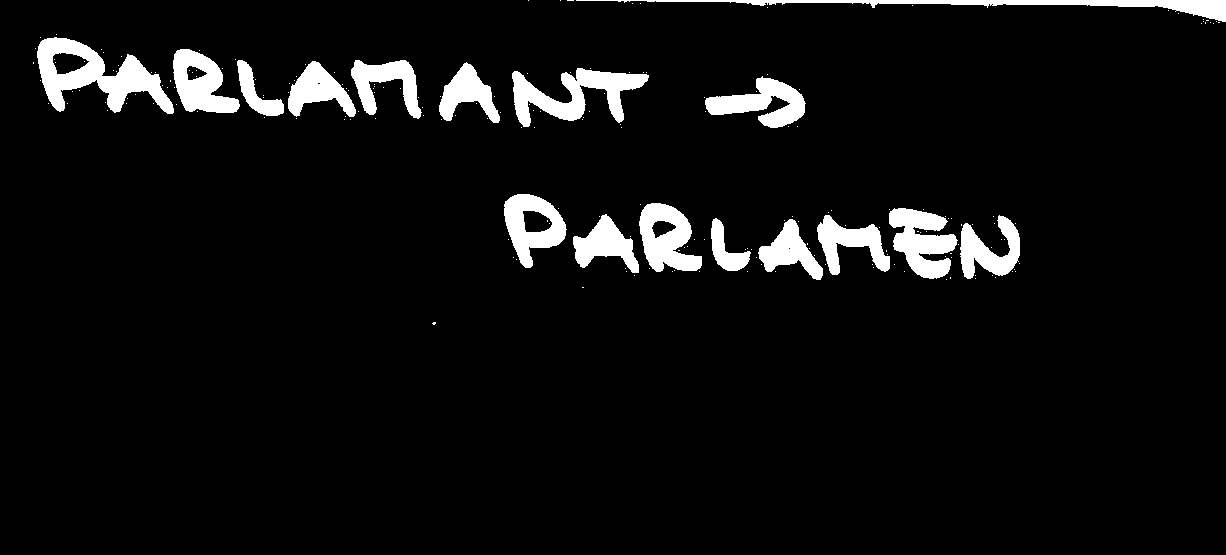 PARLAMANT →
PARLAMEN